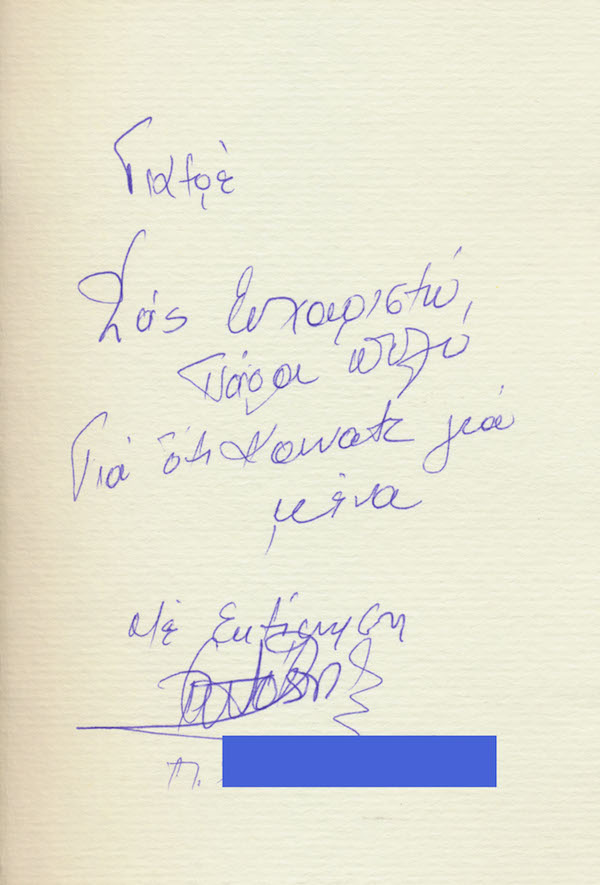 Γιατρέ
Σάς Ευχαριστώ,
Πάρα πολύ
Γιά ότι κανατε γιά
μένα
Με Εκτίμηση
Π.